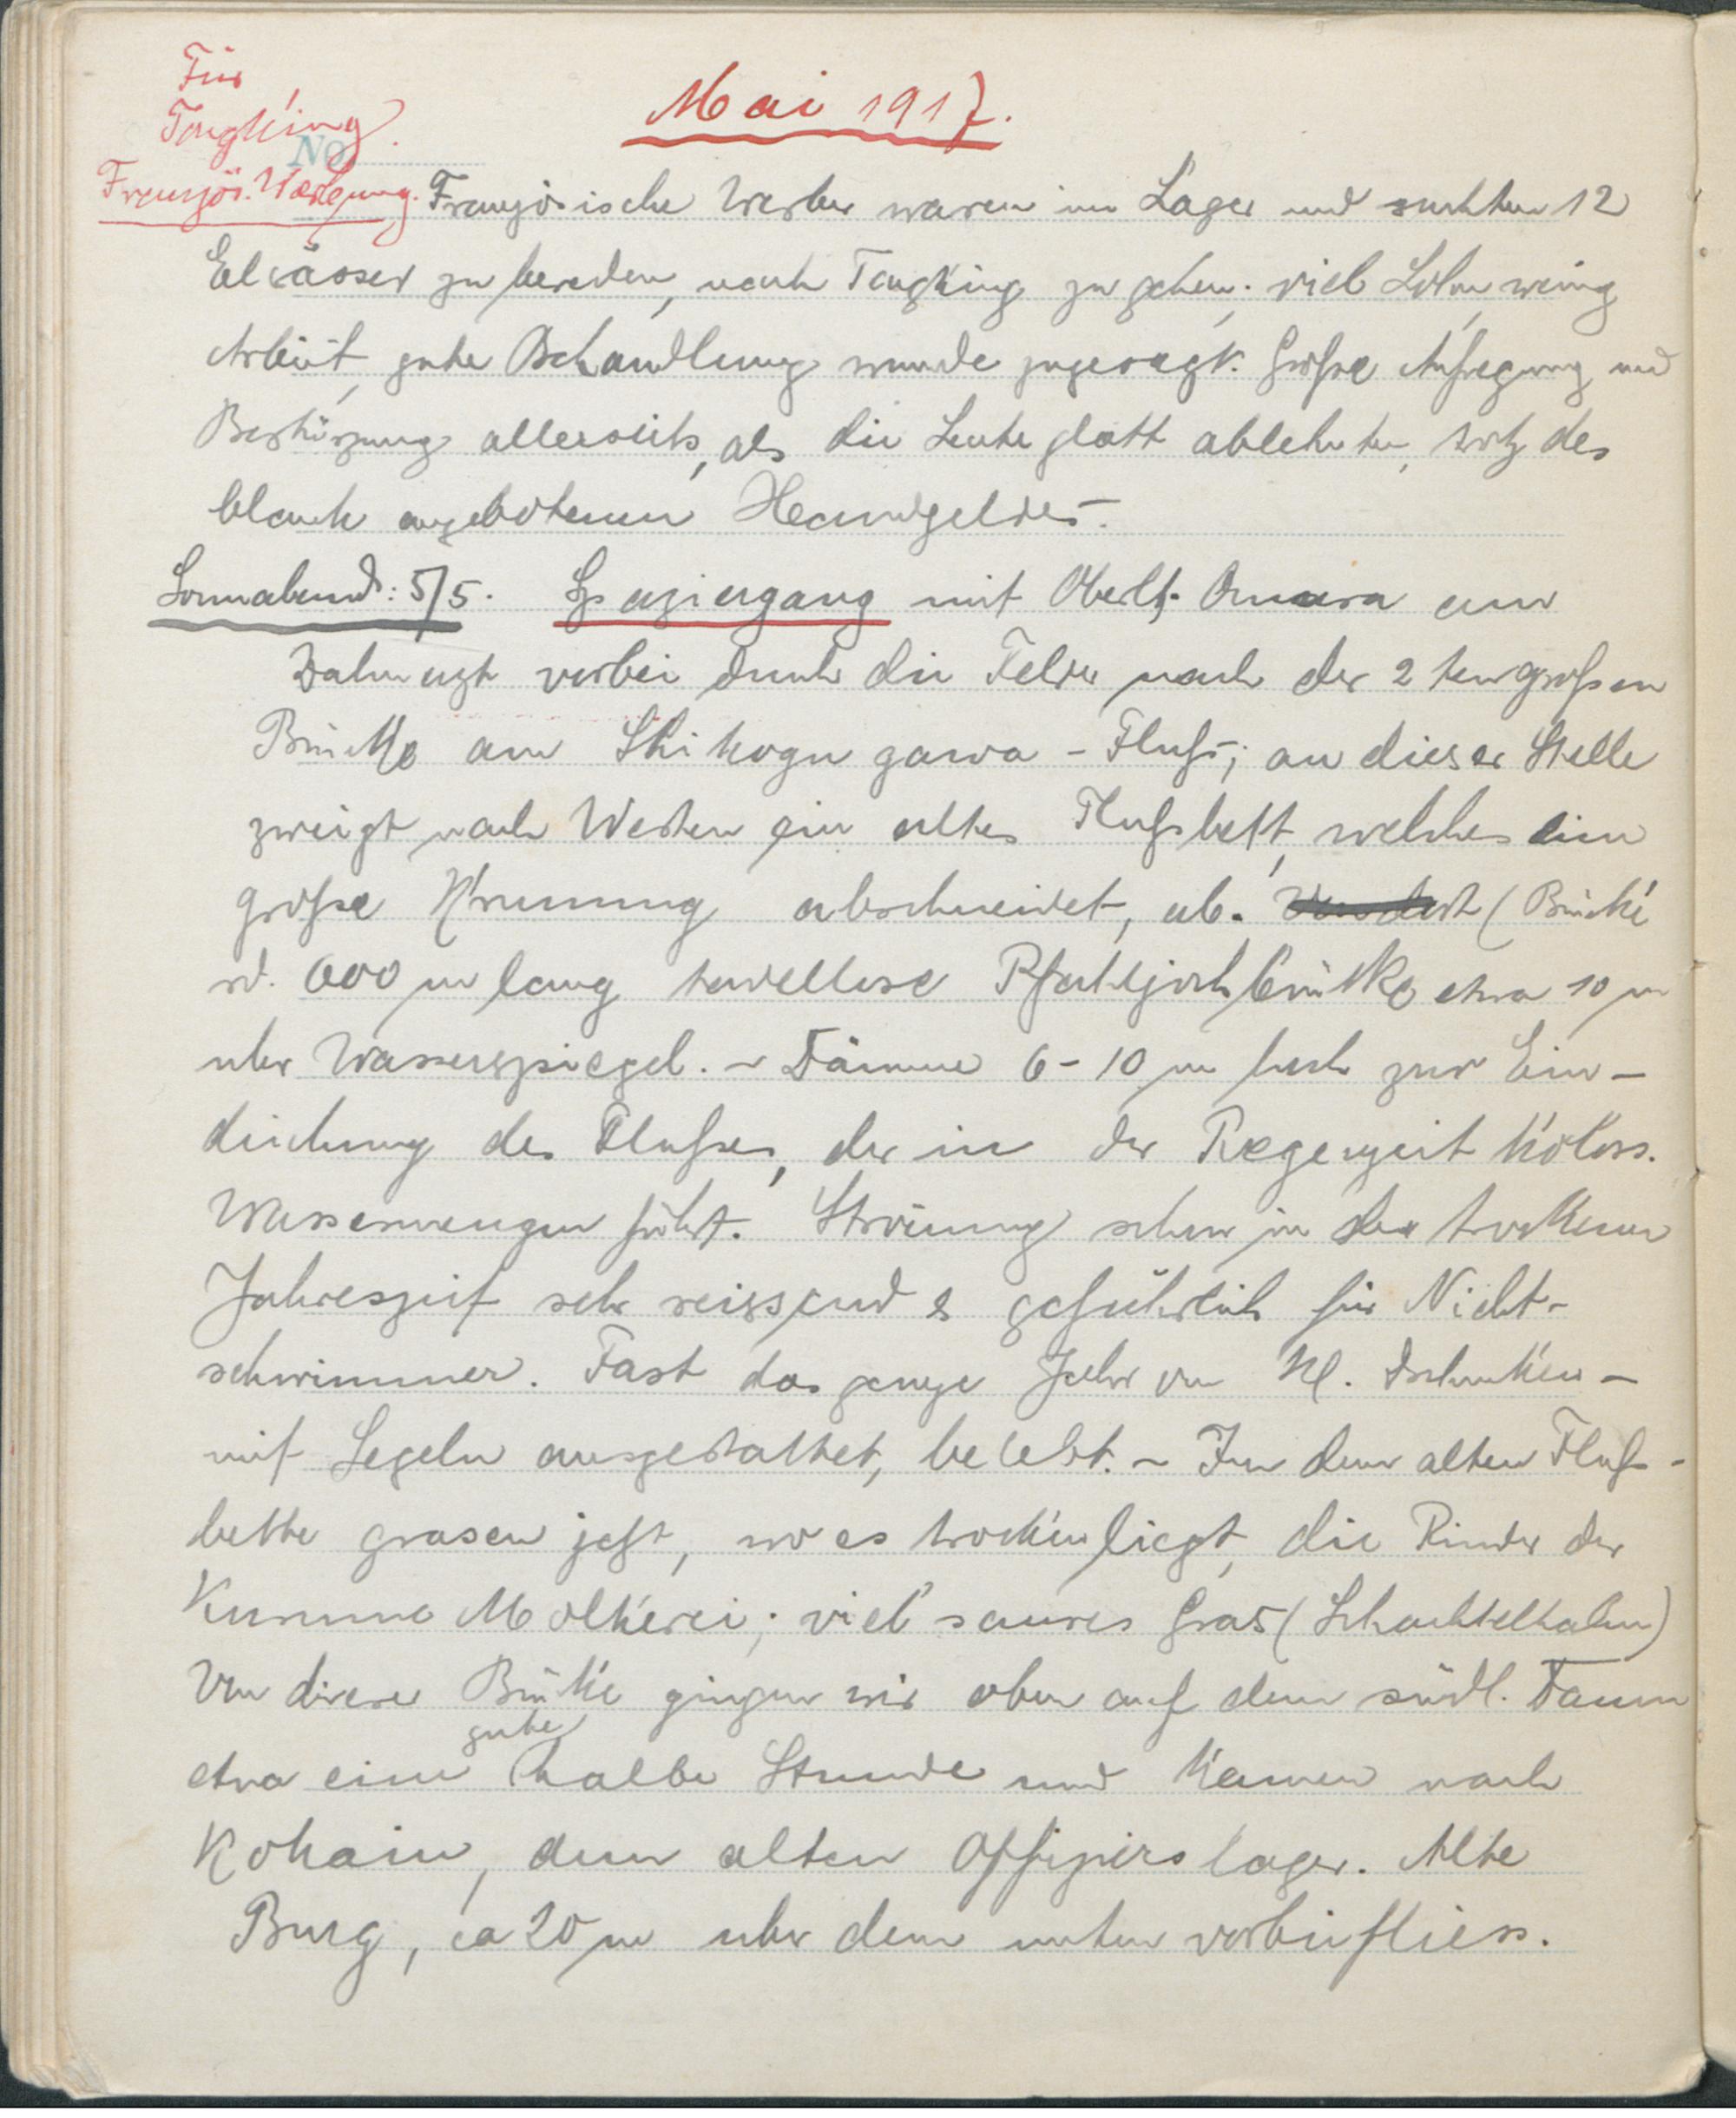 Für
Tongking
No
Französ. Werbung.
Mai 1917.
Französische Werber waren im Lager und suchten 12
Elsässer zu bereden, nach Tongking zu gehen; viel Lohn, wenig
Arbeit, gute Behandlung wurde zugesagt. Große Aufregung und
Bestürzung allerseits, als die Leute glatt ablehnten, trotz des
blank angebotenen Handgeldes.
Sonnabend: 5/5. Spaziergang mit Oberlt. Omura am
Zahnarzt vorbei durch die Felder nach der 2ten großen
Brücke am Chikogu gawa - Fluß; an dieser Stelle
zweigt nach Westen ein altes Flußbett, welches eine
große Krümung abschneidet, ab. (Brücke
rd. 600 m lang tadellose Pfahljochbrücke etwa 10 m
uber Wasserspiegel. - Dämme 6-10 m hoch zur Ein-
deichung des Flußes, der in der Regenzeit koloss.
Wassermengen führt. Strömung schon in der trockenen
Jahreszeit sehr reissend & gefährlich für Nicht-
schwimmer. Fast das ganze Jahr von kl. Dschunken -
mit Segeln ausgestattet, belebt. - In dem alten Fluß-
bette grasen jetzt, wo es trocken liegt, die Rinder der
Kurume Molkerei; viel saures Gras (Schachtelhalm)
Von dieser Brücke gingen wir oben auf dem südl. Damm
etwa eine gute halbe Stunde und kamen nach
Kohain, dem alten Offizierslager. Alte
Burg, ca 20 m uber dem unten vorbeifliess.